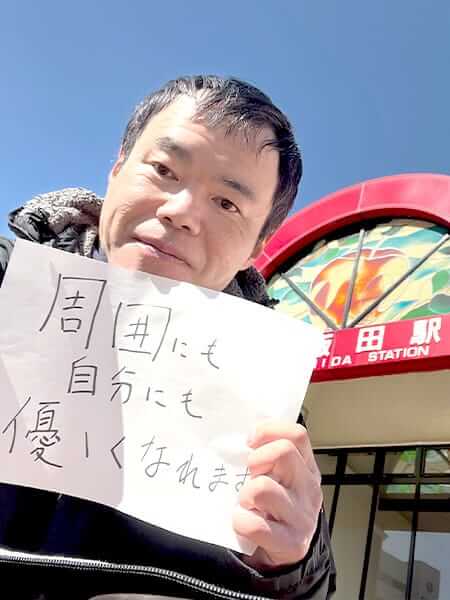 周囲にも
自分にも
優しくなれます
田駅
IDA STATION